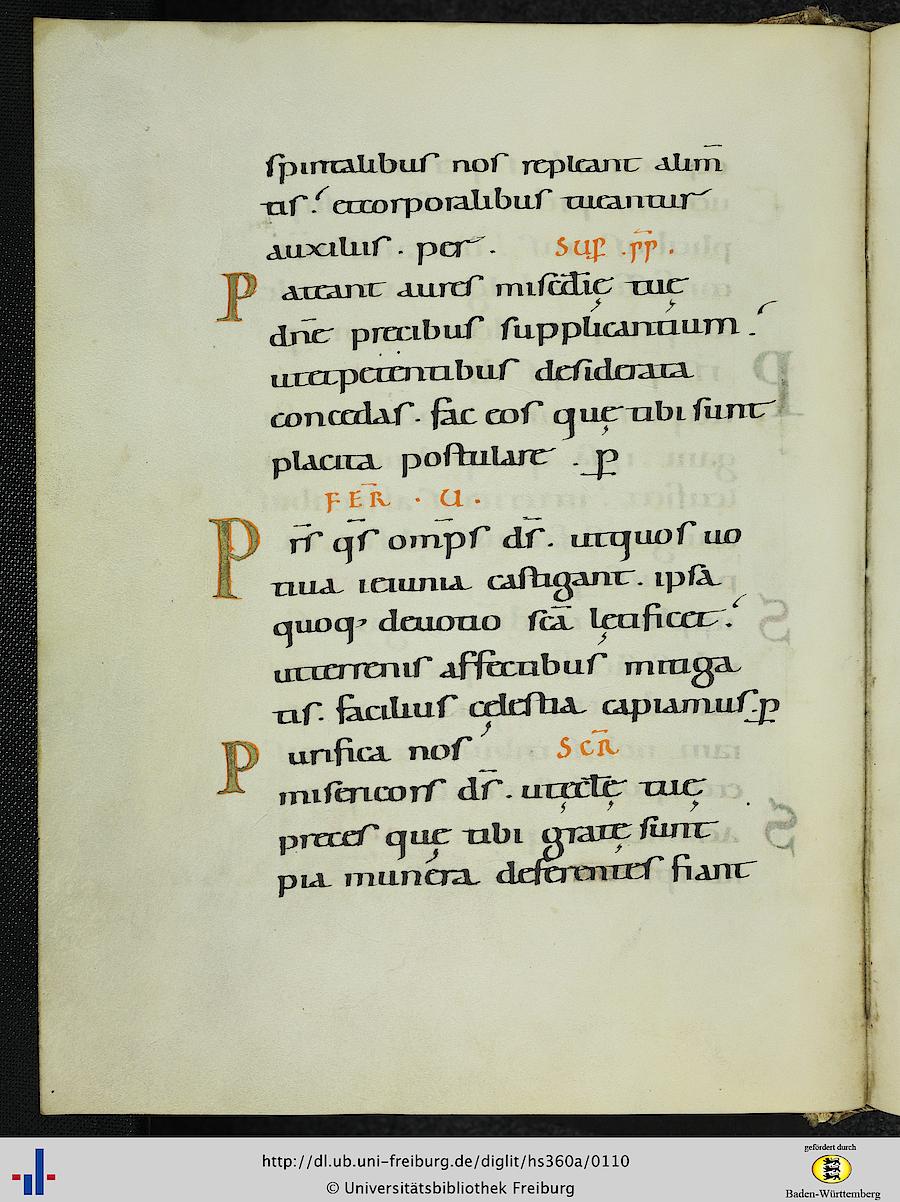 spiritalibus nos repleant alim̄
tis: et corporalibus tueantur
auxiliis . per . SUP̄ . PP̄ .
Pateant aures misc̄dię tuę
dn̄e precibus supplicantium :
ut et petentibus desiderata
concedas . fac eos quę tibi sunt
placita postulare . p̄
FER̄ . U .
Prs̄ qs̄ omp̄s ds̄ . ut quos uo
tiua ieiunia castigant . ipsa
quoq; deuotio sc̄a lętificet :
ut terrenis affectibus mitiga
tis . facilius cęlestia capiamus . p̄
Purifica nos SCR̄
misericors ds̄ . ut ęccl̄ę tuę
preces quę tibi gratę sunt
pia munera deferentes fiant
http://dl.ub.uni-freiburg.de/diglit/hs360a/0110
© Universitätsbibliothek Freiburg
gefördert durch
Baden-Württemberg